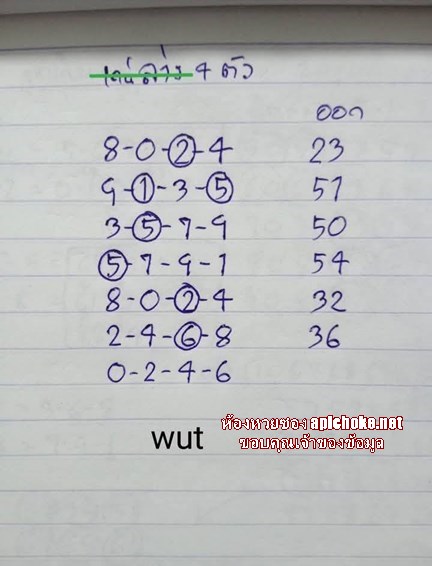 เด่นล่าง 4 ตัว
ออก
8-0-2-4 23
9-1-3-5 51
3-5-7-9 50
5-7-9-1 54
8-0-2-4 32
2-4-6-8 36
0-2-4-6
wut
ห้องหวยซอง apichoke.net
ขอบคุณเจ้าของข้อมูล